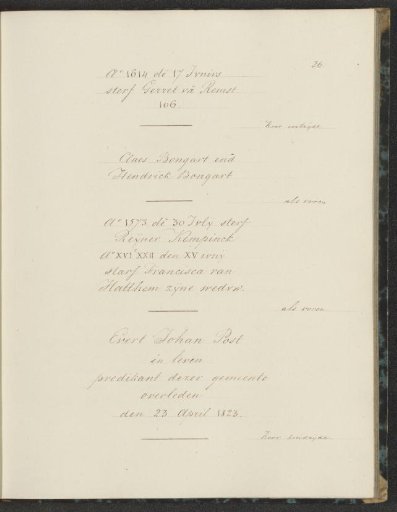 26.
Aº 1614 dē 17 Ivnivs
sterf Gerret vā Remst
166.
Claes Bongart enā
Hendrick Bongart
als voren
Aº 1573 dē 30 Ivly sterf
Reyner Kempinck
Aº XVI XXII den XV ivny
starf Francisca van
Hatthem zyne wedvw.
als voren
Evert Johan Post
in leven
predikant dezer gemeente
overleden
den 23 April 1823.